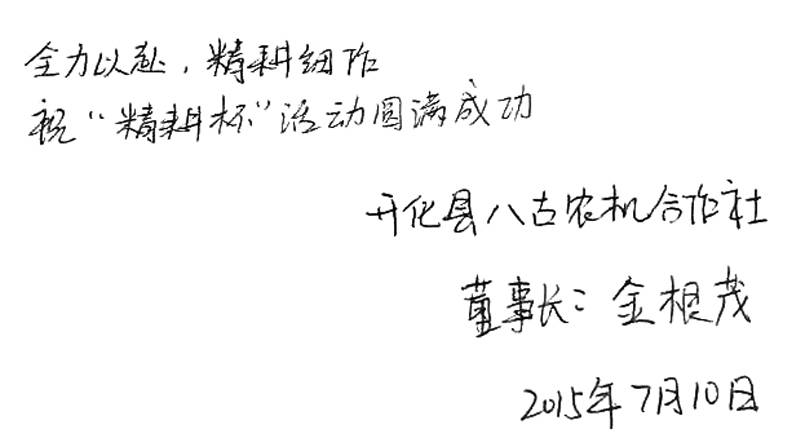 全力以赴，精耕细作
祝“精耕杯”活动圆满成功
开化县八古农机合作社
董事长：金根茂
2015年7月10日